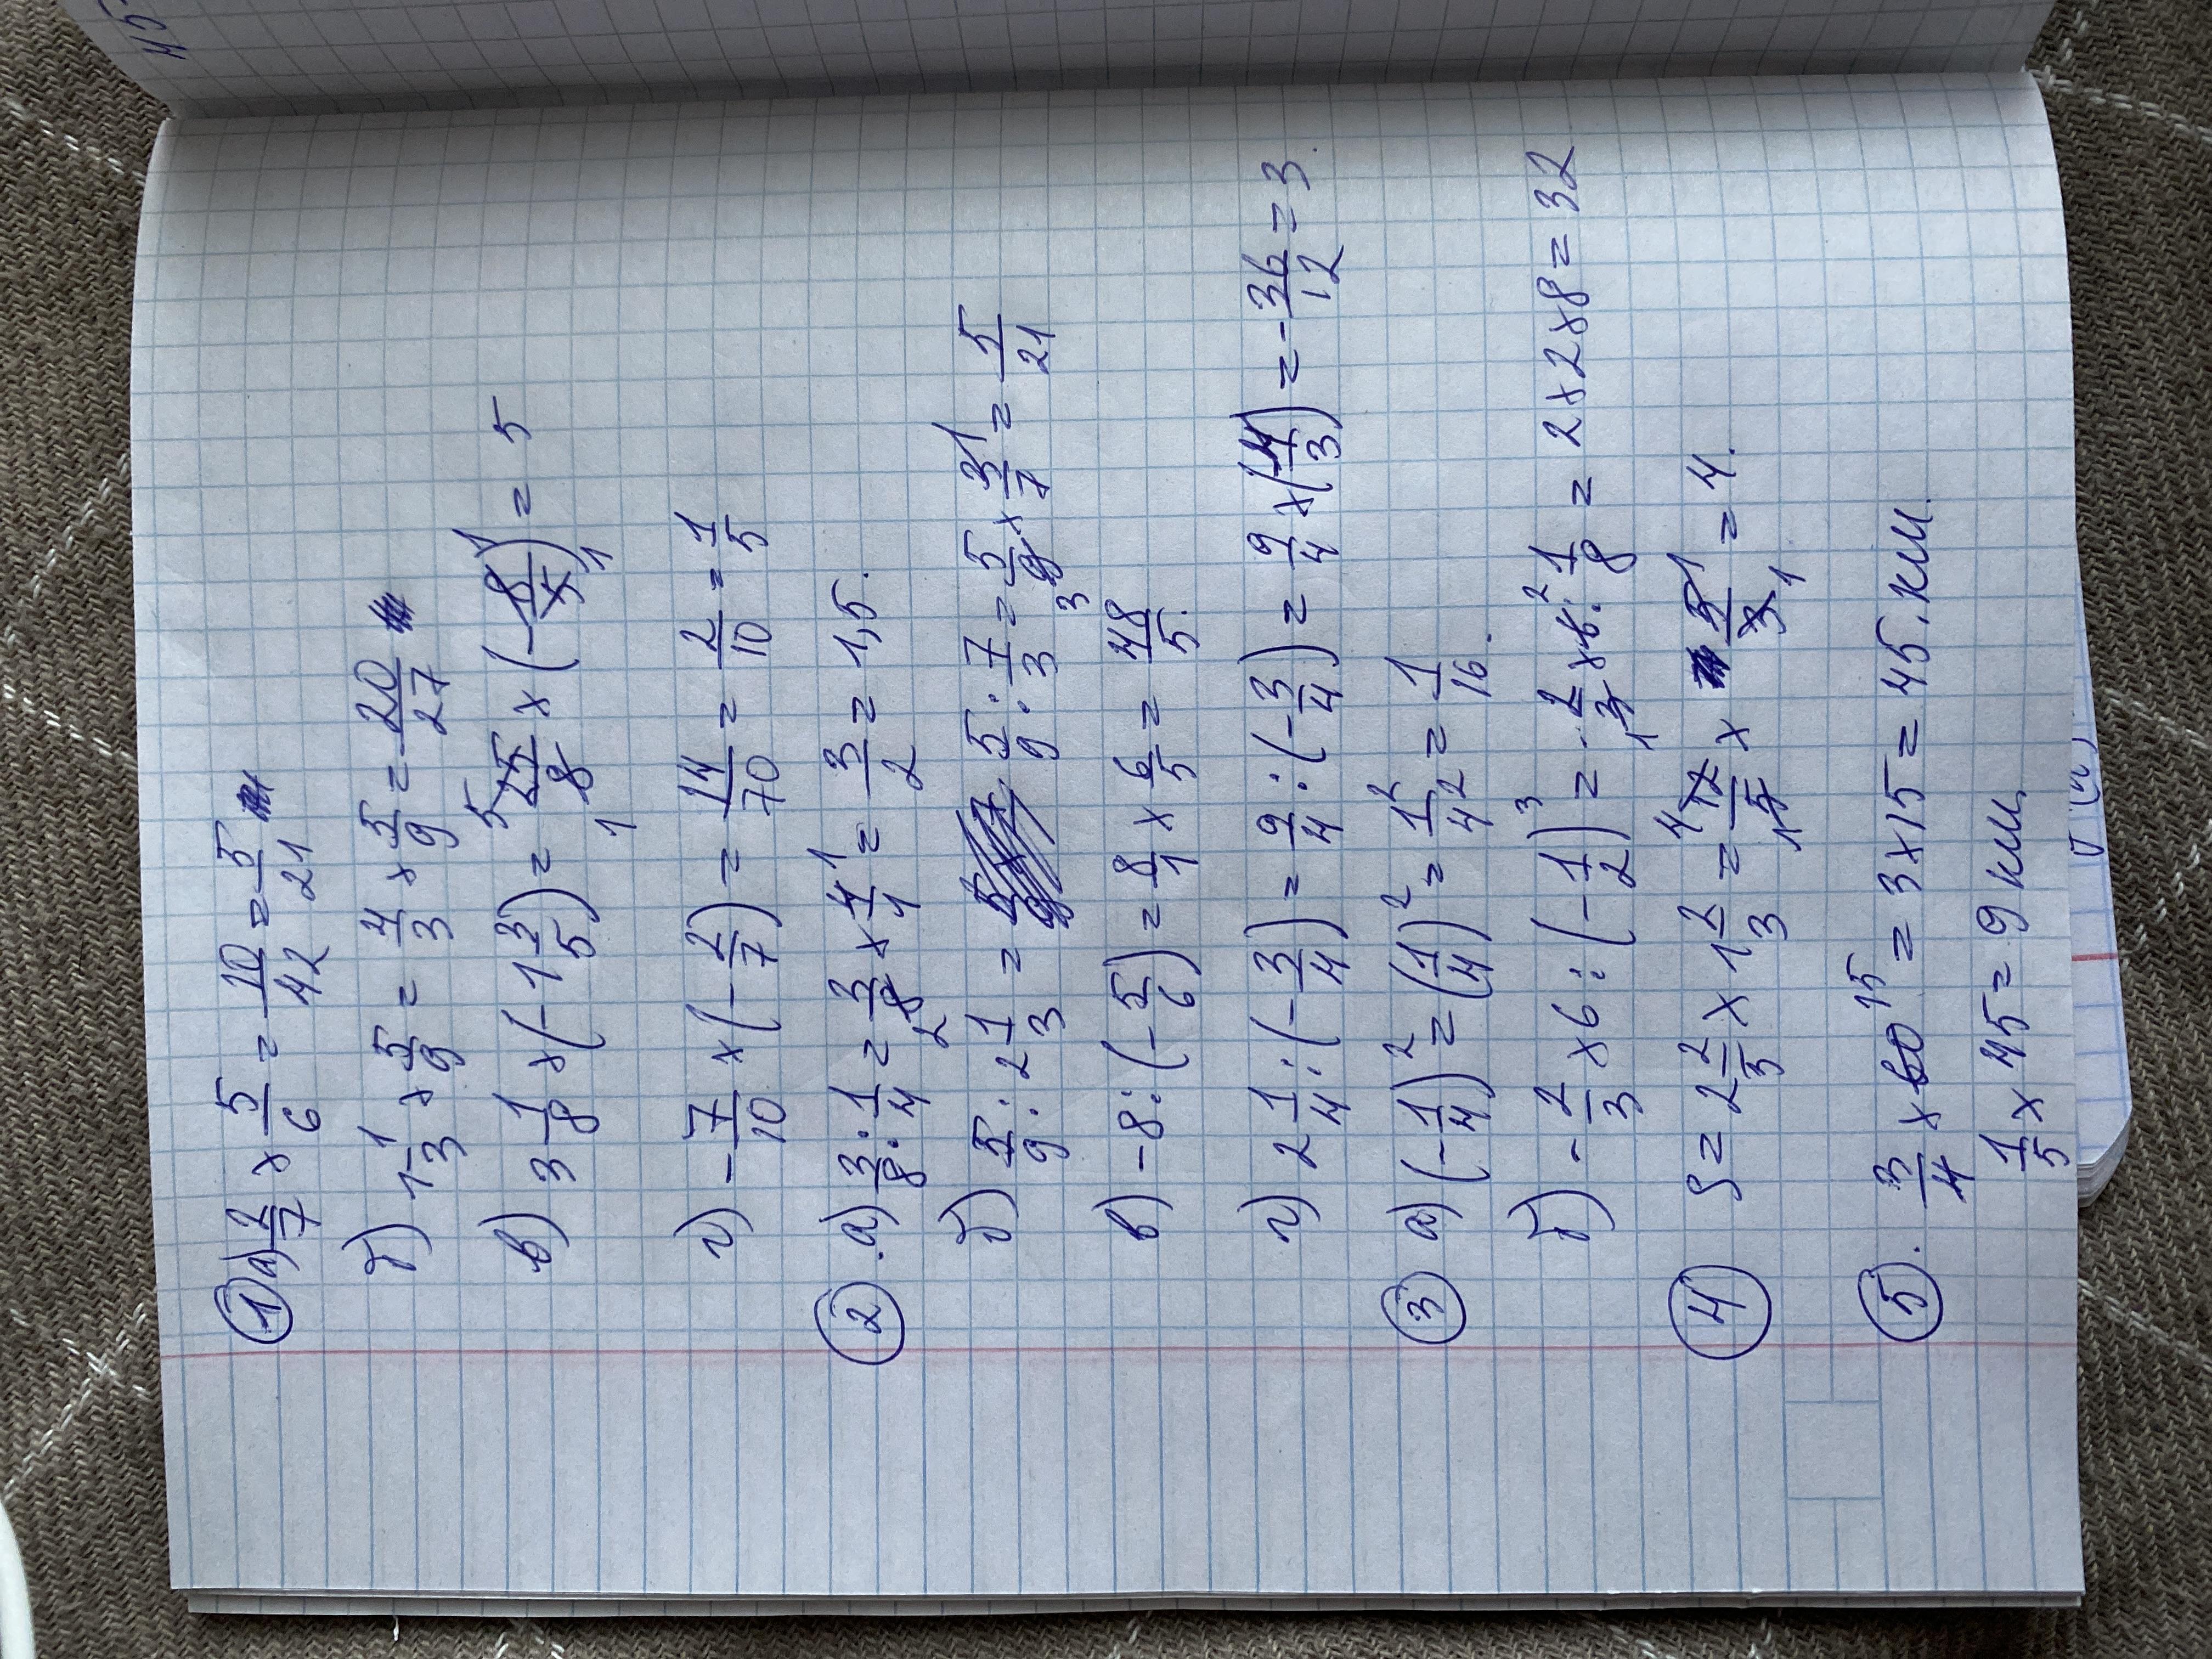 45
① а) 2/7 × 5/6 = 10/42 = 5/21
б) 1 1/3 × 5/9 = 4/3 × 5/9 = 20/27
в) 3 1/8 × (-1 3/5) = 25/8 × (-8/5) = 5
г) -7/10 × (-2/7) = 14/70 = 2/10 = 1/5
② а) 3/8 : 1/4 = 3/8 × 4/1 = 3/2 = 1,5.
б) 5/9 : 2 1/3 = 5/9 : 7/3 = 5/9 × 3/7 = 5/21
в) -8 : (-5/6) = 8/1 × 6/5 = 48/5.
г) 2 1/4 : (-3/4) = 9/4 : (-3/4) = 9/4 × (-4/3) = -36/12 = 3.
③ а) (-1/4)² = (1/4)² = 1²/4² = 1/16.
б) -2/3 × 6 : (-1/2)³ = -2/3 × 6 : 1/8 = 2×2×8 = 32
④ S = 2 2/5 × 1 2/3 = 12/5 × 5/3 = 4.
⑤. 3/4 × 60 = 3×15 = 45 км.
1/5 × 45 = 9 км.